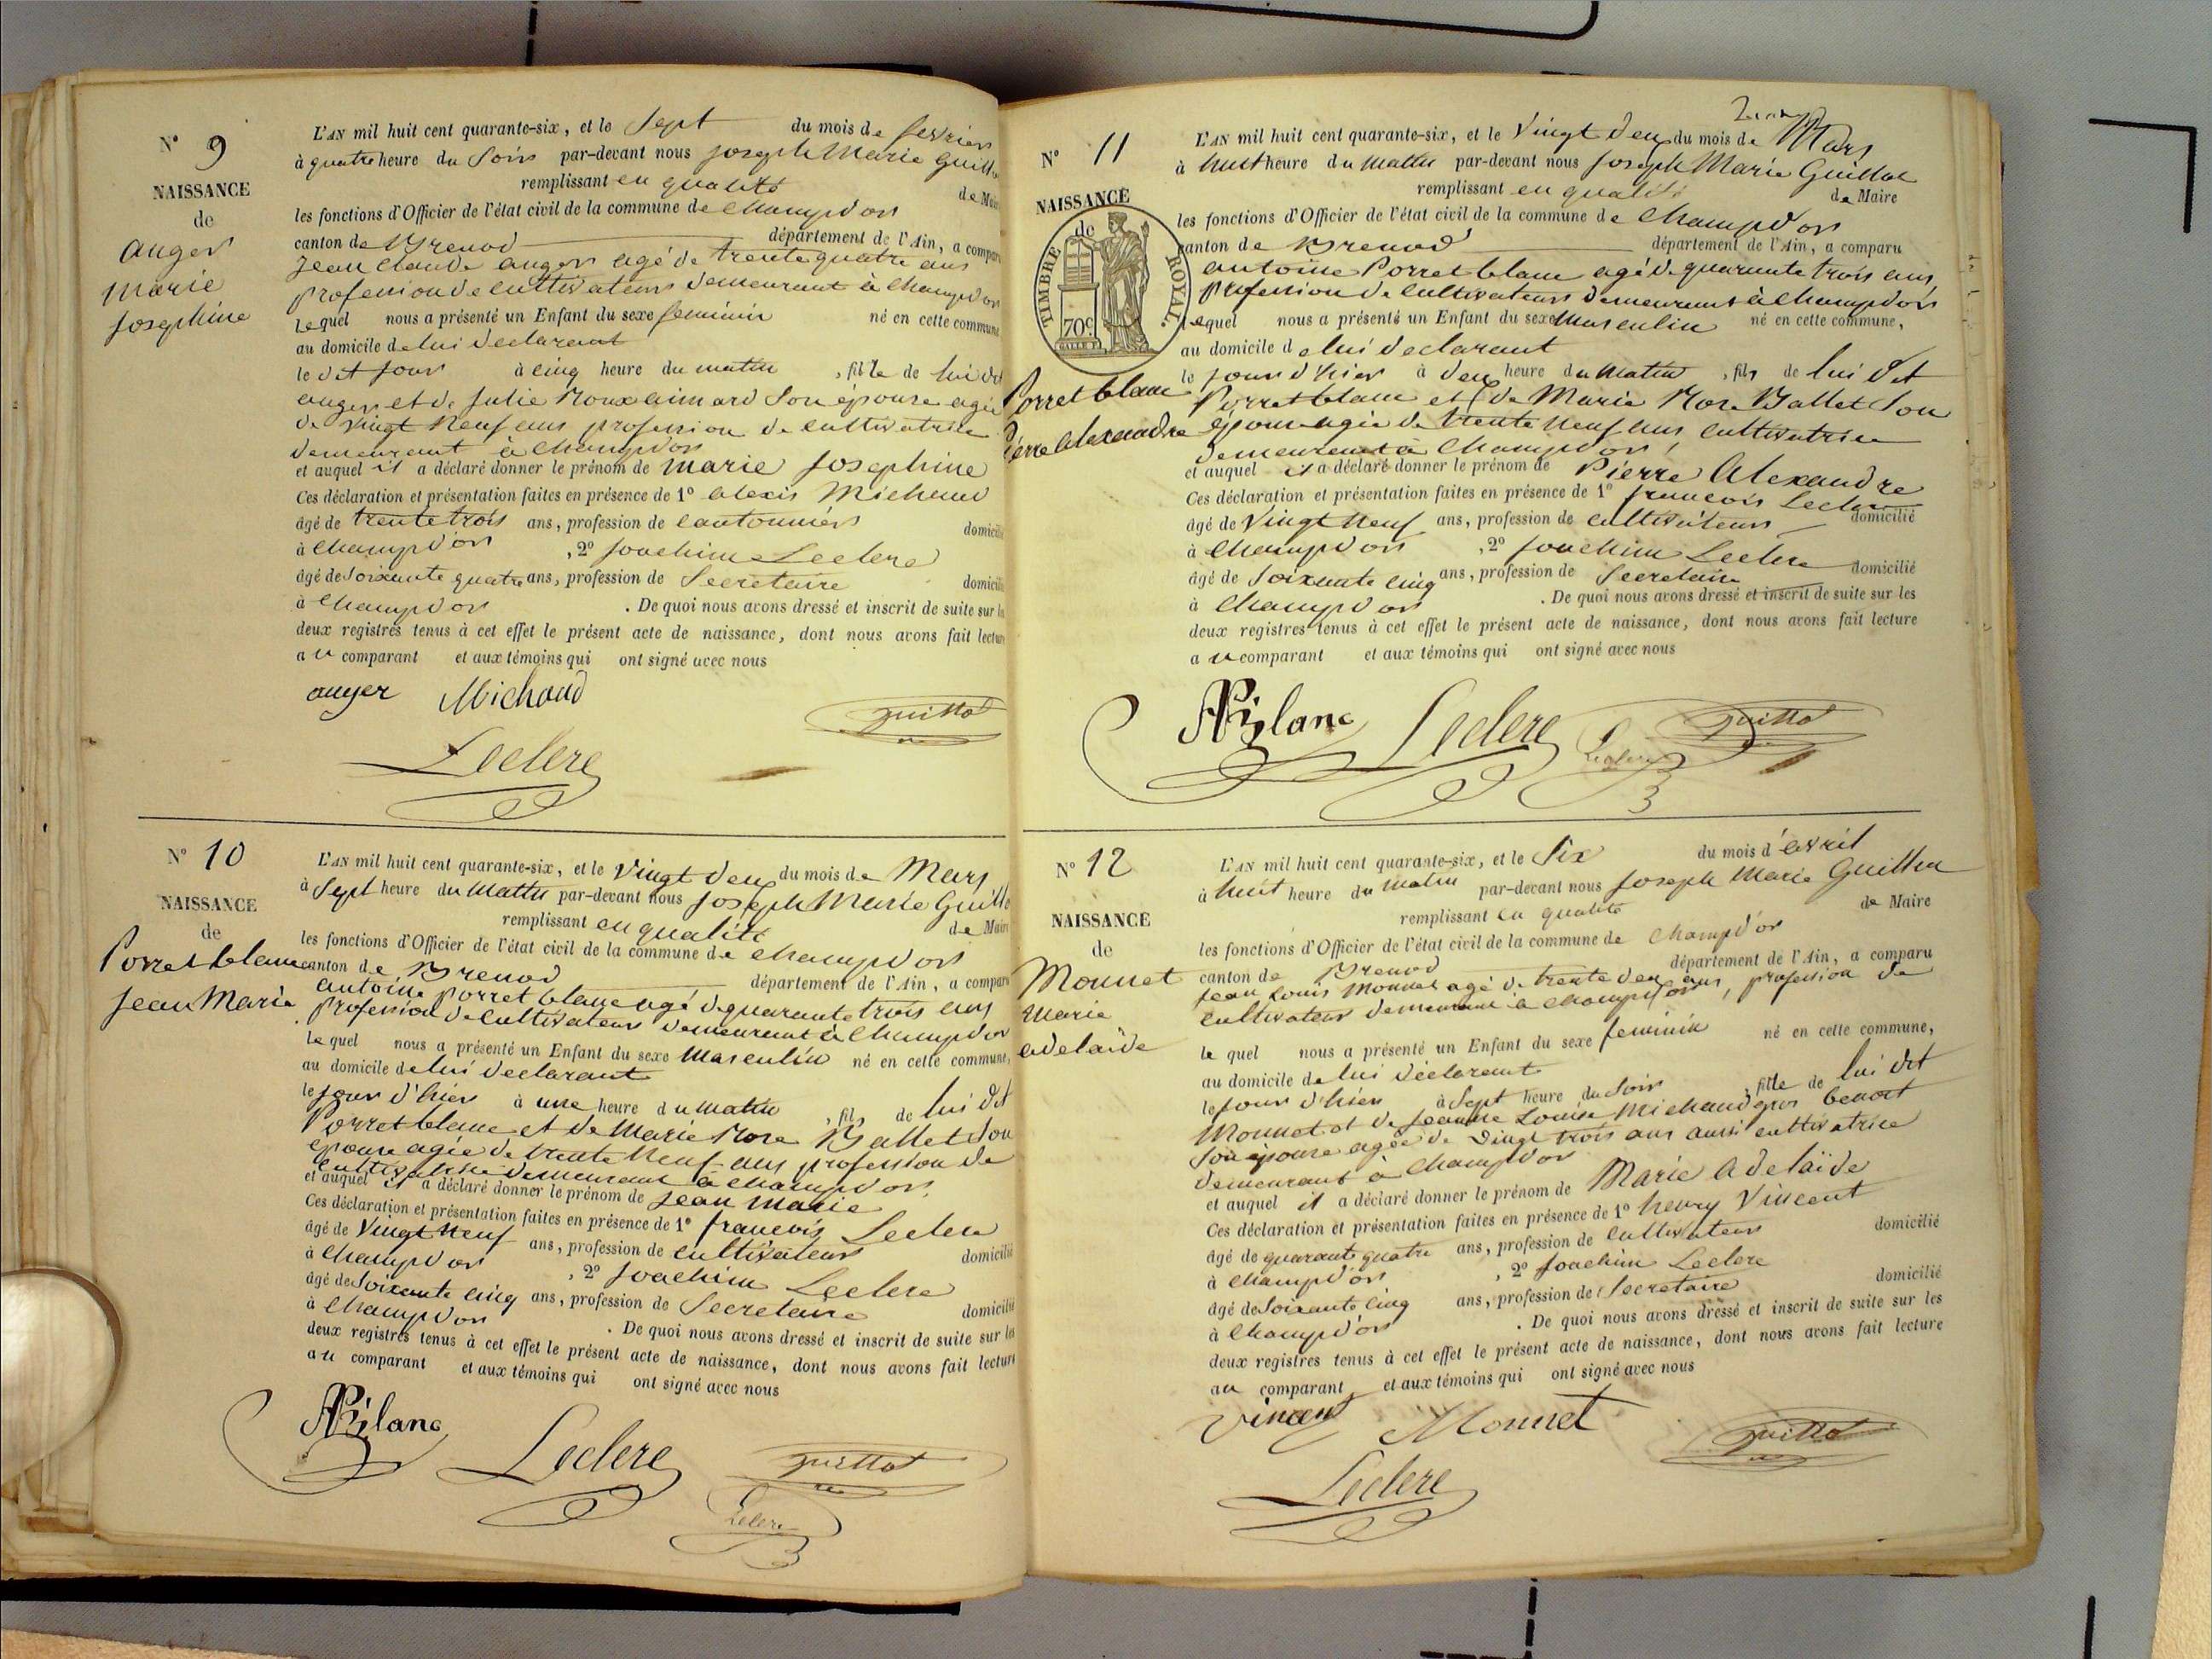 N° 9
NAISSANCE
de
auger
marie
Josephine
L'AN mil huit cent quarante-six, et le Sept du mois de fevrier
à quatre heure du Soir par-devant nous Joseph Marie Guill
remplissant en qualité de Mai
les fonctions d'Officier de l'état civil de la commune de champd'or
canton de Brenod département de l'Ain, a compar
Jean Claude auger agé de trente quatre ans
profession de cultivateur demeurant à Champdor
Lequel nous a présenté un Enfant du sexe feminin né en cette commune
au domicile de lui declarant
le dit jour à cinq heure du matin , fille de lui dit
auger et de Julie Roux aimard Son épouse agée
de vingt neuf ans profession de cultivatrice
demeurant à champdor
et auquel il a déclaré donner le prénom de marie Josephine
Ces déclaration et présentation faites en présence de 1° alexis Michaud
âgé de trente trois ans, profession de cantonnier domicilié
à Champd'or , 2° Joachim Leclerc
âgé de Soixante quatre ans, profession de Secretaire domicilié
à Champdor . De quoi nous avons dressé et inscrit de suite sur les
deux registres tenus à cet effet le présent acte de naissance, dont nous avons fait lecture
au comparant et aux témoins qui ont signé avec nous
auger Michaud
Guillot
Leclerc
N° 10
NAISSANCE
de
Porret blanc
Jean Marie
L'AN mil huit cent quarante-six, et le Vingt deux du mois de Mars
à Sept heure du Matin par-devant nous Joseph Marie Guillo
remplissant en qualité de Mair
les fonctions d'Officier de l'état civil de la commune de champdor
canton de Brenod département de l'Ain, a compar
antoine porret blanc agé de quarante trois ans
profession de cultivateur demeurant à Champdor
Lequel nous a présenté un Enfant du sexe Masculin né en cette commune,
au domicile de lui declarant
le jour d'hier à une heure du Matin , fils de lui dit
Porret blanc et de Marie Rose Ballet Son
epouse agée de trente neuf ans profession de
cultivatrice demeurant à champdor
et auquel il a déclaré donner le prénom de Jean Marie
Ces déclaration et présentation faites en présence de 1° françois Leclerc
âgé de Vingt neuf ans, profession de cultivateur domicilié
à Champdor , 2° Joachim Leclerc
âgé de Soixante cinq ans, profession de Secretaire domicilié
à Champdor . De quoi nous avons dressé et inscrit de suite sur les
deux registres tenus à cet effet le présent acte de naissance, dont nous avons fait lecture
au comparant et aux témoins qui ont signé avec nous
Leclerc Guillot
Leclerc
N° 11
NAISSANCE
de
TIMBRE ROYAL.
70c
Porret blanc
Pierre alexandre
L'AN mil huit cent quarante-six, et le Vingt deux du mois de Mars
à huit heure du Matin par-devant nous Joseph Marie Guillot
remplissant en qualité de Maire
les fonctions d'Officier de l'état civil de la commune de Champd'or
canton de Brenod département de l'Ain, a comparu
antoine Porret blanc agé de quarante trois ans,
profession de Cultivateur demeurant à Champdor
Lequel nous a présenté un Enfant du sexe Masculin né en cette commune,
au domicile de lui declarant
le jour d'hier à deux heure du Matin , fils de lui dit
Porret blanc et de Marie Rose Ballet Son
épouse agée de trente neuf ans cultivatrice
demeurant à Champdor
et auquel il a déclaré donner le prénom de Pierre Alexandre
Ces déclaration et présentation faites en présence de 1° françois Leclerc
âgé de Vingt neuf ans, profession de cultivateur domicilié
à Champdor , 2° Joachim Leclerc
âgé de Soixante cinq ans, profession de Secretaire domicilié
à Champdor . De quoi nous avons dressé et inscrit de suite sur les
deux registres tenus à cet effet le présent acte de naissance, dont nous avons fait lecture
au comparant et aux témoins qui ont signé avec nous
Leclerc Leclerc Guillot
N° 12
NAISSANCE
de
Monnet
Marie
adelaïde
L'AN mil huit cent quarante-six, et le Six du mois d'avril
à huit heure du matin par-devant nous Joseph Marie Guillot
remplissant en qualité de Maire
les fonctions d'Officier de l'état civil de la commune de Champd'or
canton de Brenod département de l'Ain, a comparu
Jean Louis Monnet agé de trente deux ans, profession de
cultivateur demeurant à Champdor
le quel nous a présenté un Enfant du sexe feminin né en cette commune,
au domicile de lui declarant
le jour d'hier à Sept heure du Soir , fille de lui dit
Monnet et de Jeanne Louise Michaud gros benoit
Son épouse agée de vingt trois ans aussi cultivatrice
demeurant à Champdor
et auquel il a déclaré donner le prénom de Marie Adelaïde
Ces déclaration et présentation faites en présence de 1° henry Vincent
âgé de quarante quatre ans, profession de Cultivateur domicilié
à champd'or , 2° Joachim Leclerc
âgé de Soixante cinq ans, profession de Secretaire domicilié
à Champd'or . De quoi nous avons dressé et inscrit de suite sur les
deux registres tenus à cet effet le présent acte de naissance, dont nous avons fait lecture
au comparant et aux témoins qui ont signé avec nous
Vincent Monnet Guillot
Leclerc